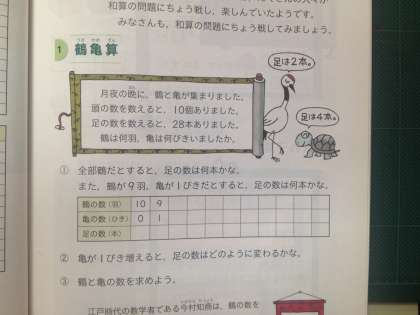 和算の問題にちょう戦し，楽しんでいたようです。
みなさんも，和算の問題にちょう戦してみましょう。
1 鶴亀算
つる かめ ざん
足は2本。
月夜の晩に，鶴と亀が集まりました。
頭の数を数えると，10個ありました。
足の数を数えると，28本ありました。
鶴は何羽，亀は何びきいましたか。
足は4本。
① 全部鶴だとすると，足の数は何本かな。
また，鶴が9羽，亀が1ぴきだとすると，足の数は何本かな。
鶴の数(羽) 10 9
亀の数(ひき) 0 1
足の数(本)
② 亀が1ぴき増えると，足の数はどのように変わるかな。
③ 鶴と亀の数を求めよう。
江戸時代の数学者である今村知商は，鶴の数を